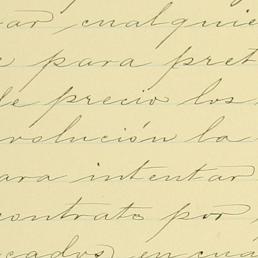 ar, cualquie
para pret
de precio los
volución la
ara intentar
contrato por
cados, en cua